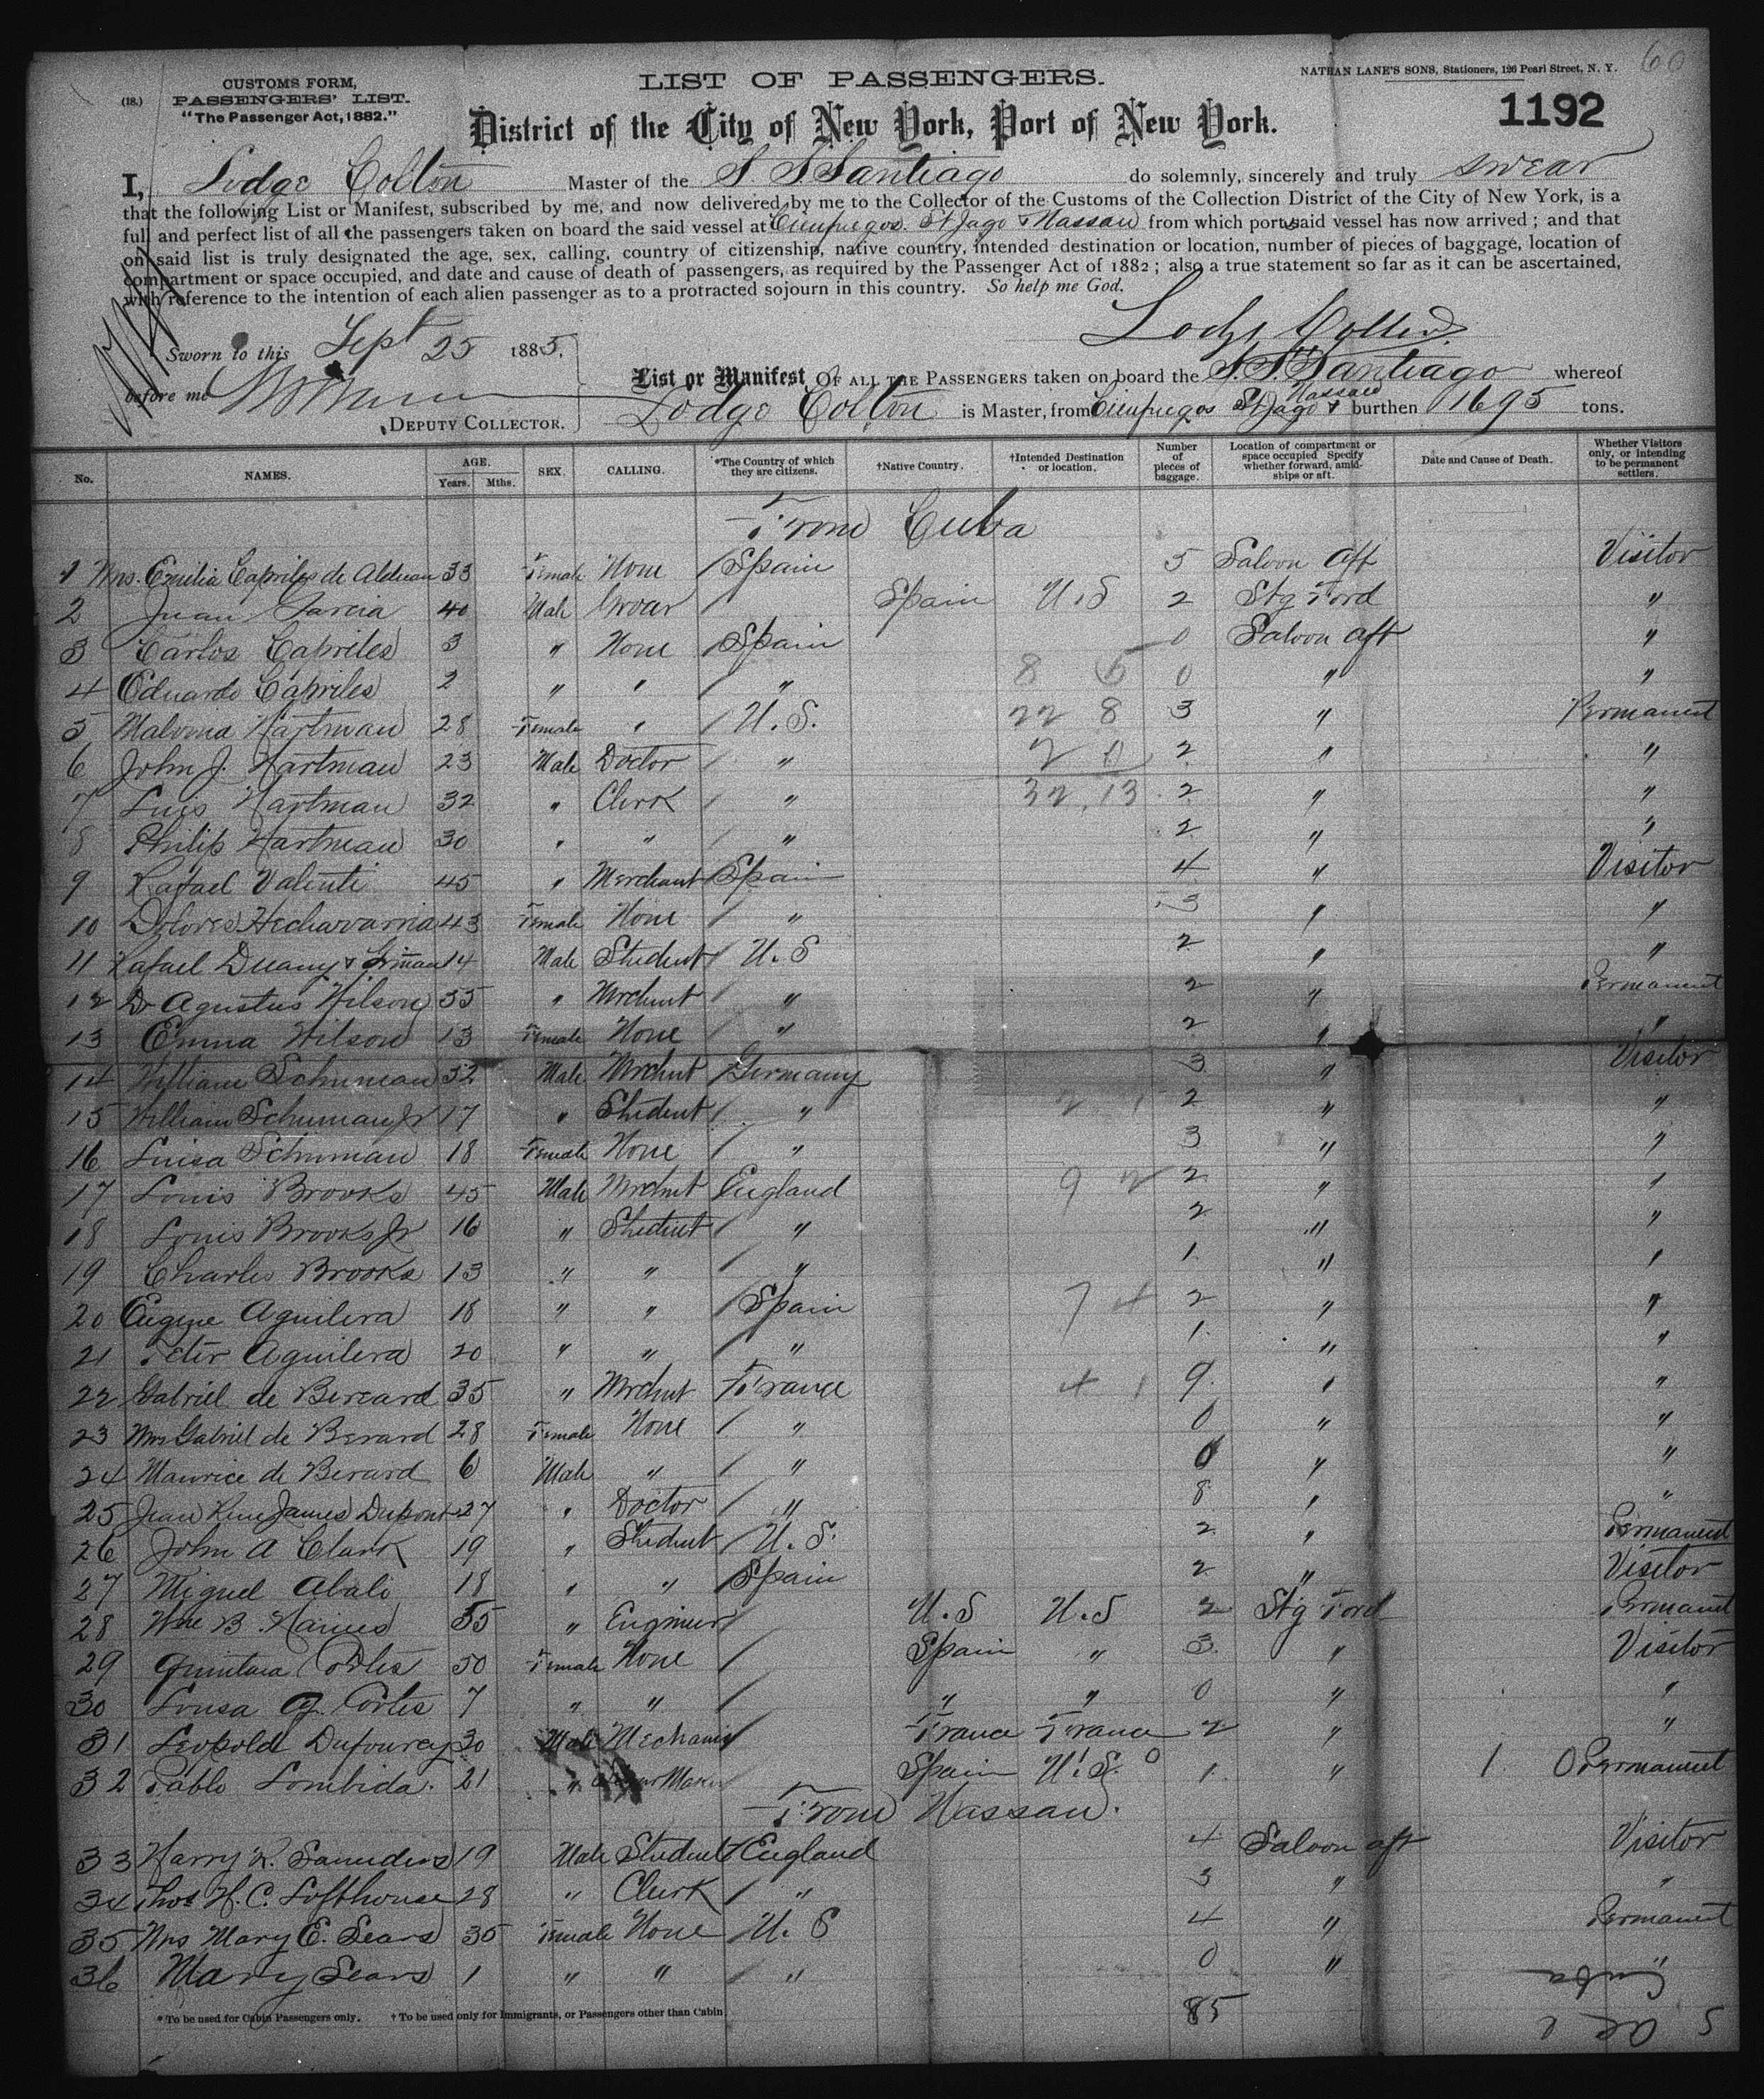 60
CUSTOMS FORM,
(18.) PASSENGERS' LIST.
"The Passenger Act, 1882."
LIST OF PASSENGERS.
NATHAN LANE'S SONS, Stationers, 126 Pearl Street, N. Y.
1192
District of the City of New York, Port of New York.
I, Lodge Colton Master of the S. S. Santiago do solemnly, sincerely and truly swear
that the following List or Manifest, subscribed by me, and now delivered by me to the Collector of the Customs of the Collection District of the City of New York, is a
full and perfect list of all the passengers taken on board the said vessel at Cienfuegos. St Jago & Nassau from which ports said vessel has now arrived; and that
on said list is truly designated the age, sex, calling, country of citizenship, native country, intended destination or location, number of pieces of baggage, location of
compartment or space occupied, and date and cause of death of passengers, as required by the Passenger Act of 1882; also a true statement so far as it can be ascertained,
with reference to the intention of each alien passenger as to a protracted sojourn in this country. So help me God.
Lodge Colton
Sworn to this Sept 25 1885,
before me
DEPUTY COLLECTOR.
List or Manifest OF ALL THE PASSENGERS taken on board the S. S. Santiago whereof
Lodge Colton is Master, from Cienfuegos St Jago & Nassau burthen 1695 tons.
No. NAMES. AGE. Years. Mths. SEX. CALLING. *The Country of which they are citizens. †Native Country. †Intended Destination or location. Number of pieces of baggage. Location of compartment or space occupied Specify whether forward, amidships or aft. Date and Cause of Death. Whether Visitors only, or intending to be permanent settlers.
From Cuba
1 Mrs. Emilia Capriles de Alduan 33 Female None / Spain 5 Saloon aft Visitor
2 Juan Garcia 40 Male Grocer / Spain U.S 2 Stg Ford "
3 Carlos Capriles 3 " None / Spain 0 Saloon aft "
4 Eduardo Capriles 2 " " / " 8 5 0 " "
5 Malvina Hartman 28 Female " / U.S. 22 8 3 " Permanent
6 John J. Hartman 23 Male Doctor / " 2 0 2 " "
7 Luis Hartman 32 " Clerk / " 32 13 2 " "
8 Philip Hartman 30 " " / " 2 " "
9 Rafael Valenti 45 " Merchant / Spain 4 " Visitor
10 Dolores Hechavarria 43 Female None / " 3 " "
11 Rafael Duany & Griñan 14 Male Student / U.S 2 " "
12 Dr Agustus Wilson 55 " Mrchnt / " 2 " Permanent
13 Emma Wilson 13 Female None / " 2 " "
14 William Schuman 52 Male Mrchnt / Germany 3 " Visitor
15 William Schuman Jr 17 " Student / " 2 1 2 " "
16 Luisa Schuman 18 Female None / " 3 " "
17 Louis Brooks 45 Male Mrchnt England 9 2 2 " "
18 Louis Brooks Jr 16 " Student / " 2 " "
19 Charles Brooks 13 " " / " 1 " "
20 Eugene Aguilera 18 " " / Spain 7 4 2 " "
21 Peter Aguilera 20 " " / " 1 " "
22 Gabriel de Bercard 35 " Mrchnt France 4 1 9 " "
23 Mrs Gabriel de Berard 28 Female None / " 0 " "
24 Maurice de Berard 6 Male " / " 0 " "
25 Jean Rene James Dupont 27 " Doctor / " 8 " "
26 John A Clark 19 " Student / U.S. 2 " Permanent
27 Miguel Abalo 18 " " / Spain 2 " Visitor
28 Wm B. Haines 55 " Enginer / U.S U.S 2 Stg Ford Permanent
29 Quintara Cortes 50 Female None / Spain " 3 " Visitor
30 Lousa G. Cortes 7 " " / " " 0 " "
31 Leopold Dufourcq 30 Male Mechanic / France France 2 " "
32 Pablo Lombida. 21 " Cigar Maker Spain U.S. 0 1 " 1 0 Permanent
From Nassau.
33 Harry R. Saunders 19 Male Student / England 4 Saloon aft Visitor
34 Thos H. C. Lofthouse 28 " Clerk / " 3 " "
35 Mrs Mary E. Sears 35 Female None / U.S 4 " Permanent
36 Mary Sears 1 " " / " 0 " "
85
Cuba
* To be used for Cabin Passengers only. † To be used only for Immigrants, or Passengers other than Cabin